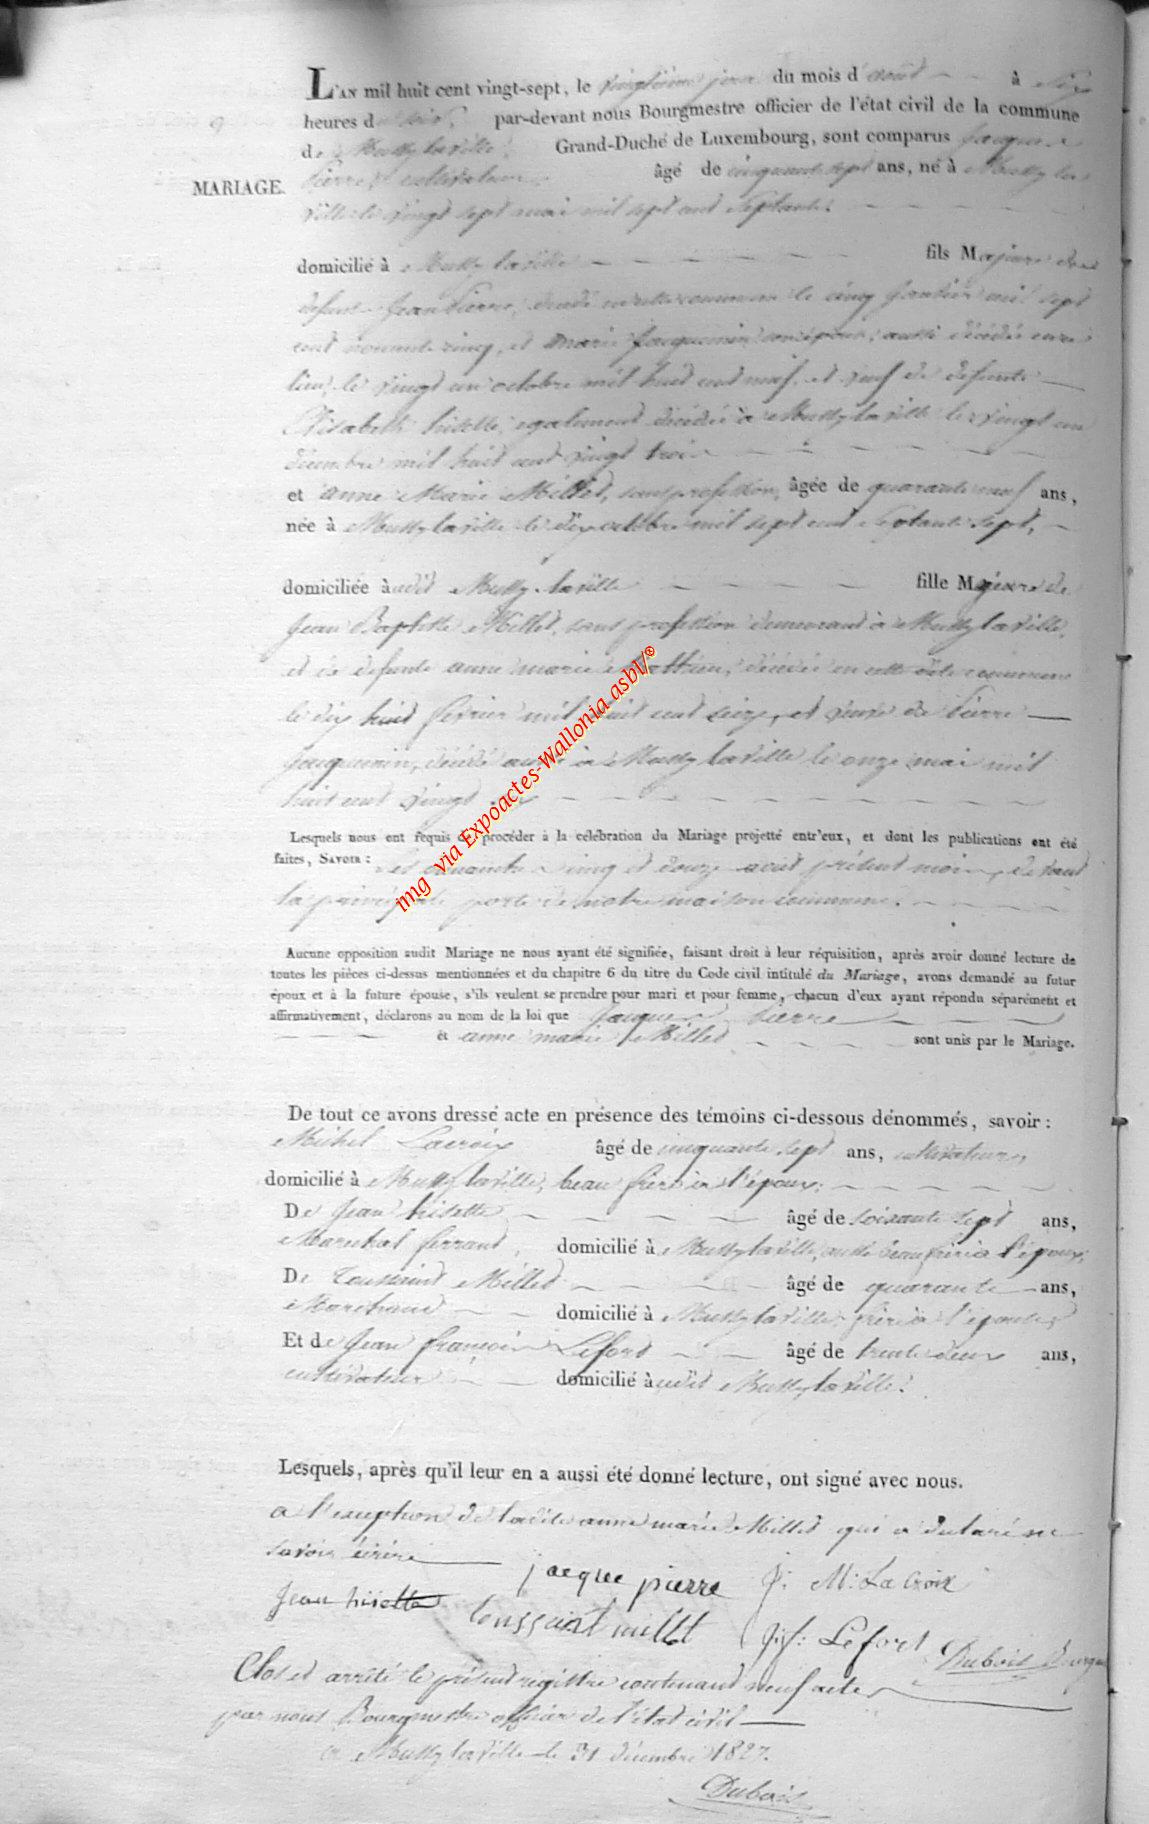 L'AN mil huit cent vingt-sept, le vingtième jour du mois d'août à six
heures du soir, par-devant nous Bourgmestre officier de l'état civil de la commune
de Mussy laville Grand-Duché de Luxembourg, sont comparus Jacque
MARIAGE. Pierre, cultivateur âgé de cinquante sept ans, né à Mussy la
ville le vingt sept mai mil sept cent septante
domicilié à Mussy laville fils Majeur de
defunt Jean Pierre, décédé en cette commune le cinq janvier mil sept
cent nonante cinq, et Marie Jacquemin, aussi décédée
lieu, le vingt un octobre mil huit cent neuf, et veuf de defunte
Elisabeth hisette, egalement décédée à Mussy laville le vingt un
décembre mil huit cent vingt trois
et Anne Marie Millet, sans profession, âgée de quarante neuf ans,
née à Mussy laville le dix octobre mil sept cent septante sept,
domiciliée audit Mussy laville fille Majeure de
Jean Baptiste Millet, sans profession demeurant à Mussy laville,
et de defunte anne marie décédée en cette dite commune
le dix huit fevrier mil huit cent seize, et veuve de Pierre
Jacquemin, décédé aussi à Mussy laville le onze mai mil
huit cent vingt
Lesquels nous ont requis de procéder à la célébration du Mariage projetté entr'eux, et dont les publications ont été
faites, SAVOIR : cinq et douze aout présent mois, devant
la principale porte de notre maison commune.
Aucune opposition audit Mariage ne nous ayant été signifiée, faisant droit à leur réquisition, après avoir donné lecture de
toutes les pièces ci-dessus mentionnées et du chapitre 6 du titre du Code civil intitulé du Mariage, avons demandé au futur
époux et à la future épouse, s'ils veulent se prendre pour mari et pour femme, chacun d'eux ayant répondu séparément et
affirmativement, déclarons au nom de la loi que Jacque Pierre
et anne marie Millet sont unis par le Mariage.
De tout ce avons dressé acte en présence des témoins ci-dessous dénommés, savoir :
Michel Lacroix âgé de cinquante sept ans, cultivateur
domicilié à Mussy laville, beau frère à l'époux;
De Jean hisette âgé de soixante sept ans,
Marechal ferrant, domicilié à Mussy laville, aussi beau frère à l'époux;
De Toussaint Millet âgé de quarante ans,
Marchand domicilié à Mussy laville frère à l'épouse
Et de Jean françois Lefort âgé de trente deux ans,
cultivateur domicilié audit Mussy laville.
Lesquels, après qu'il leur en a aussi été donné lecture, ont signé avec nous.
a l'exception de ladite anne marie Millet qui a declaré ne
savoir écrire jacque pierre J: M: La Croix
Jean hisette toussaint millet J: f: Lefort Dubois Bourgm
Clos et arrêté le présent registre contenant neuf actes
par nous Bourgmestre officier de l'état civil
a Mussy laville le 31 décembre 1827.
Dubois
img via Expoactes-Wallonia asbl/®